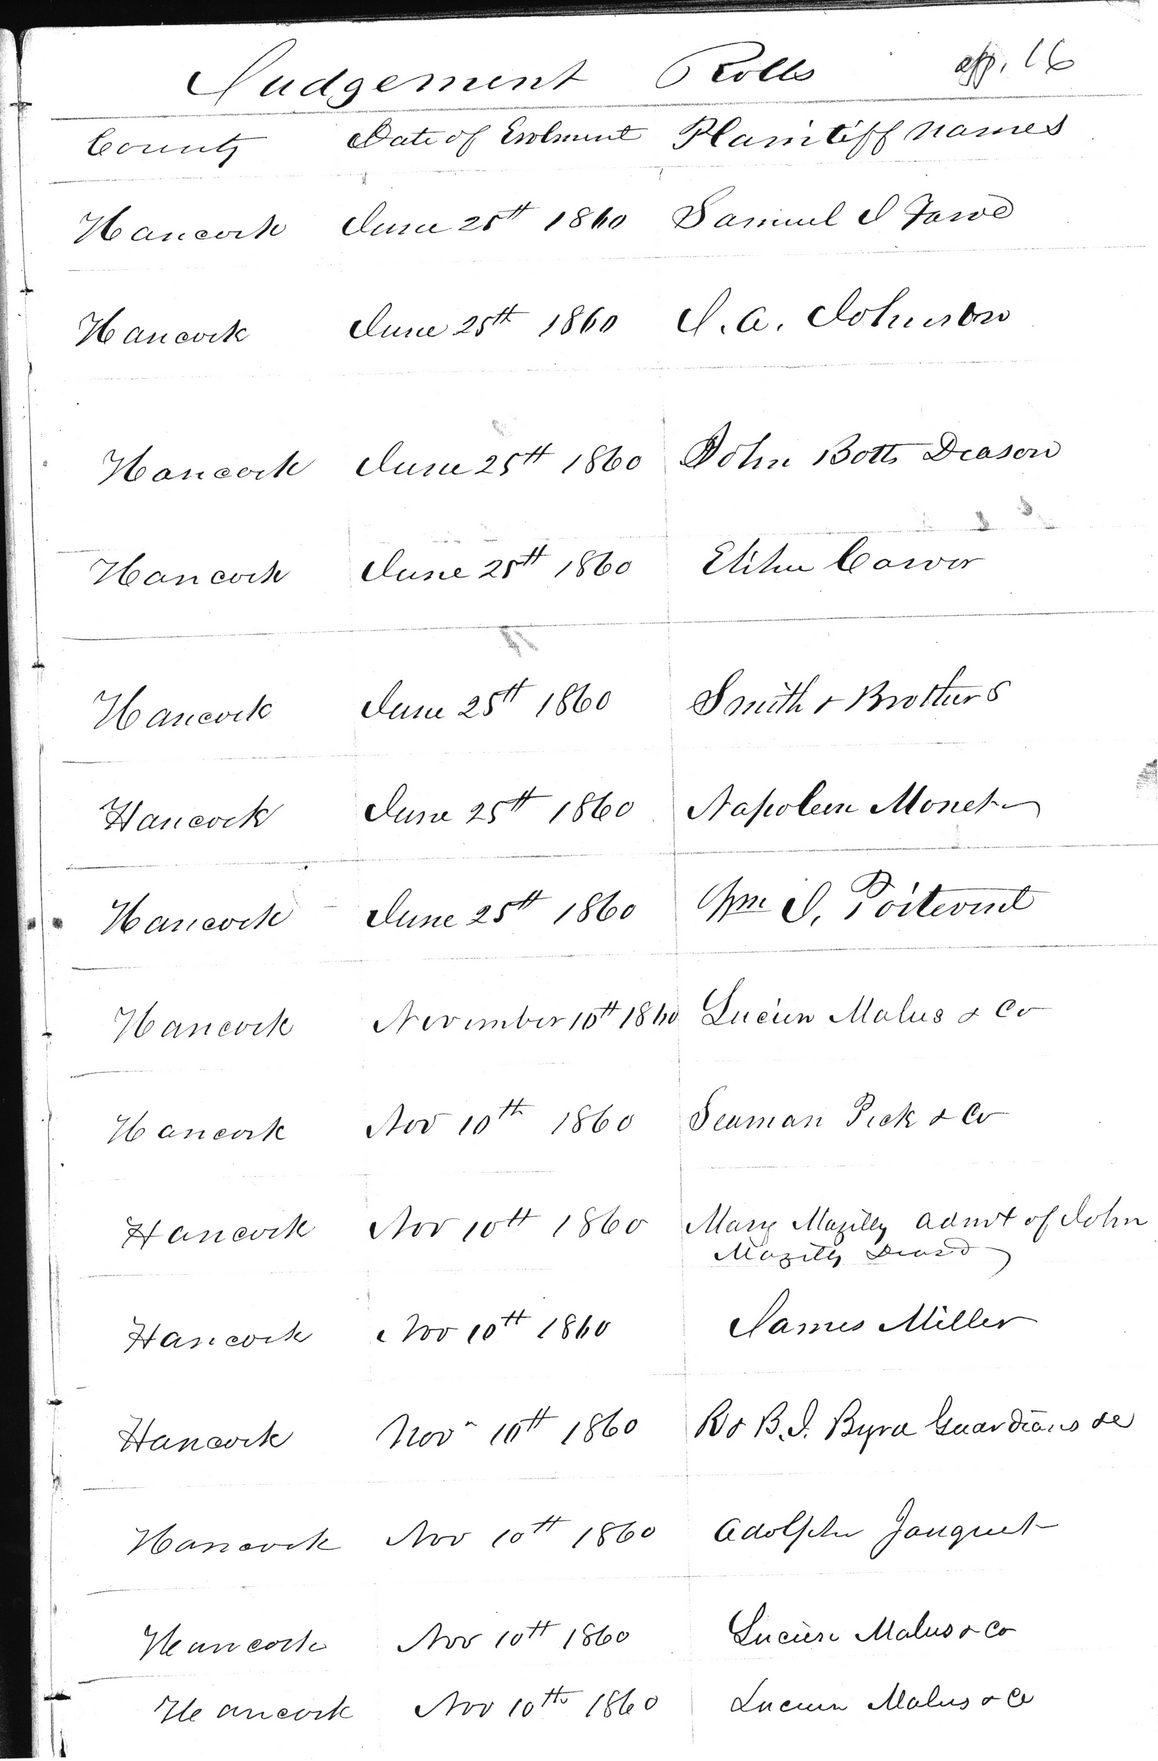 Judgement Rolls app. 16
County Date of Enrolment Plaintiff names
Hancock June 25th 1860 Samuel I
Hancock June 25th 1860 J. A. Johnson
Hancock June 25th 1860 John Botts Deason
Hancock June 25th 1860 Elihu Carver
Hancock June 25th 1860 Smith & Brothers
Hancock June 25th 1860 Napoleon Monet
Hancock June 25th 1860 Wm J. Poitevent
Hancock November 10th 1860 Lucien Malus & Co
Hancock Nov 10th 1860 Seaman Peck & Co
Hancock Nov 10th 1860 Mary Mazilly admt of John
Mazilly Deasd
Hancock Nov 10th 1860 James Miller
Hancock Nov 10th 1860 R & B. J. Byrd Guardians &c
Hancock Nov 10th 1860 Adolphe Jaquet
Hancock Nov 10th 1860 Lucien Malus & Co
Hancock Nov 10th 1860 Lucien Malus & Co